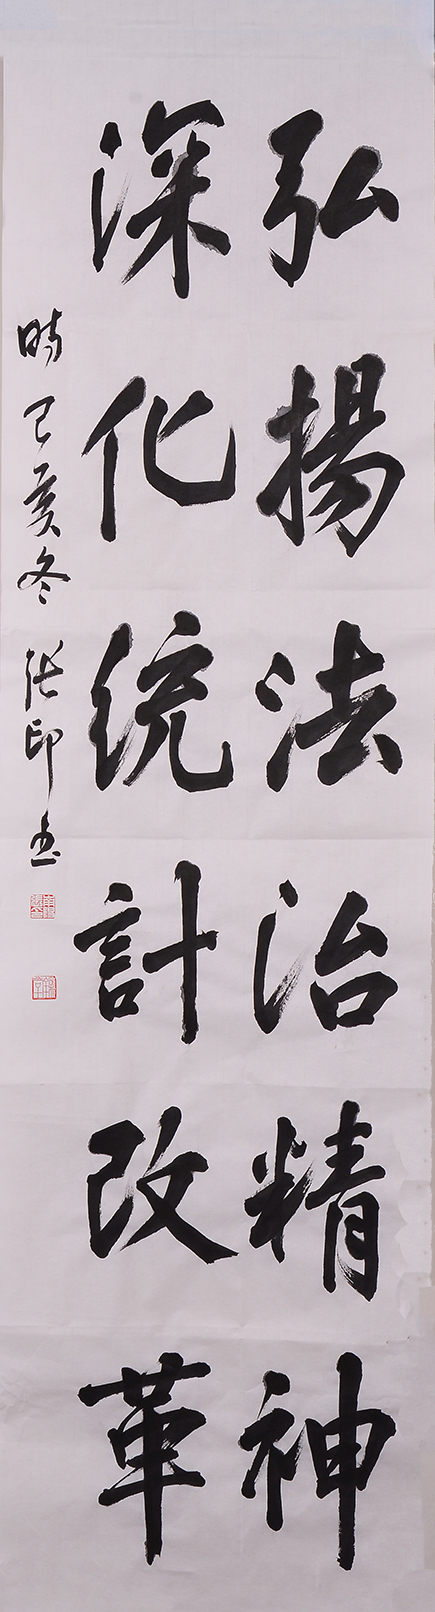 弘揚法治精神
深化統計改革
時己亥冬張印書